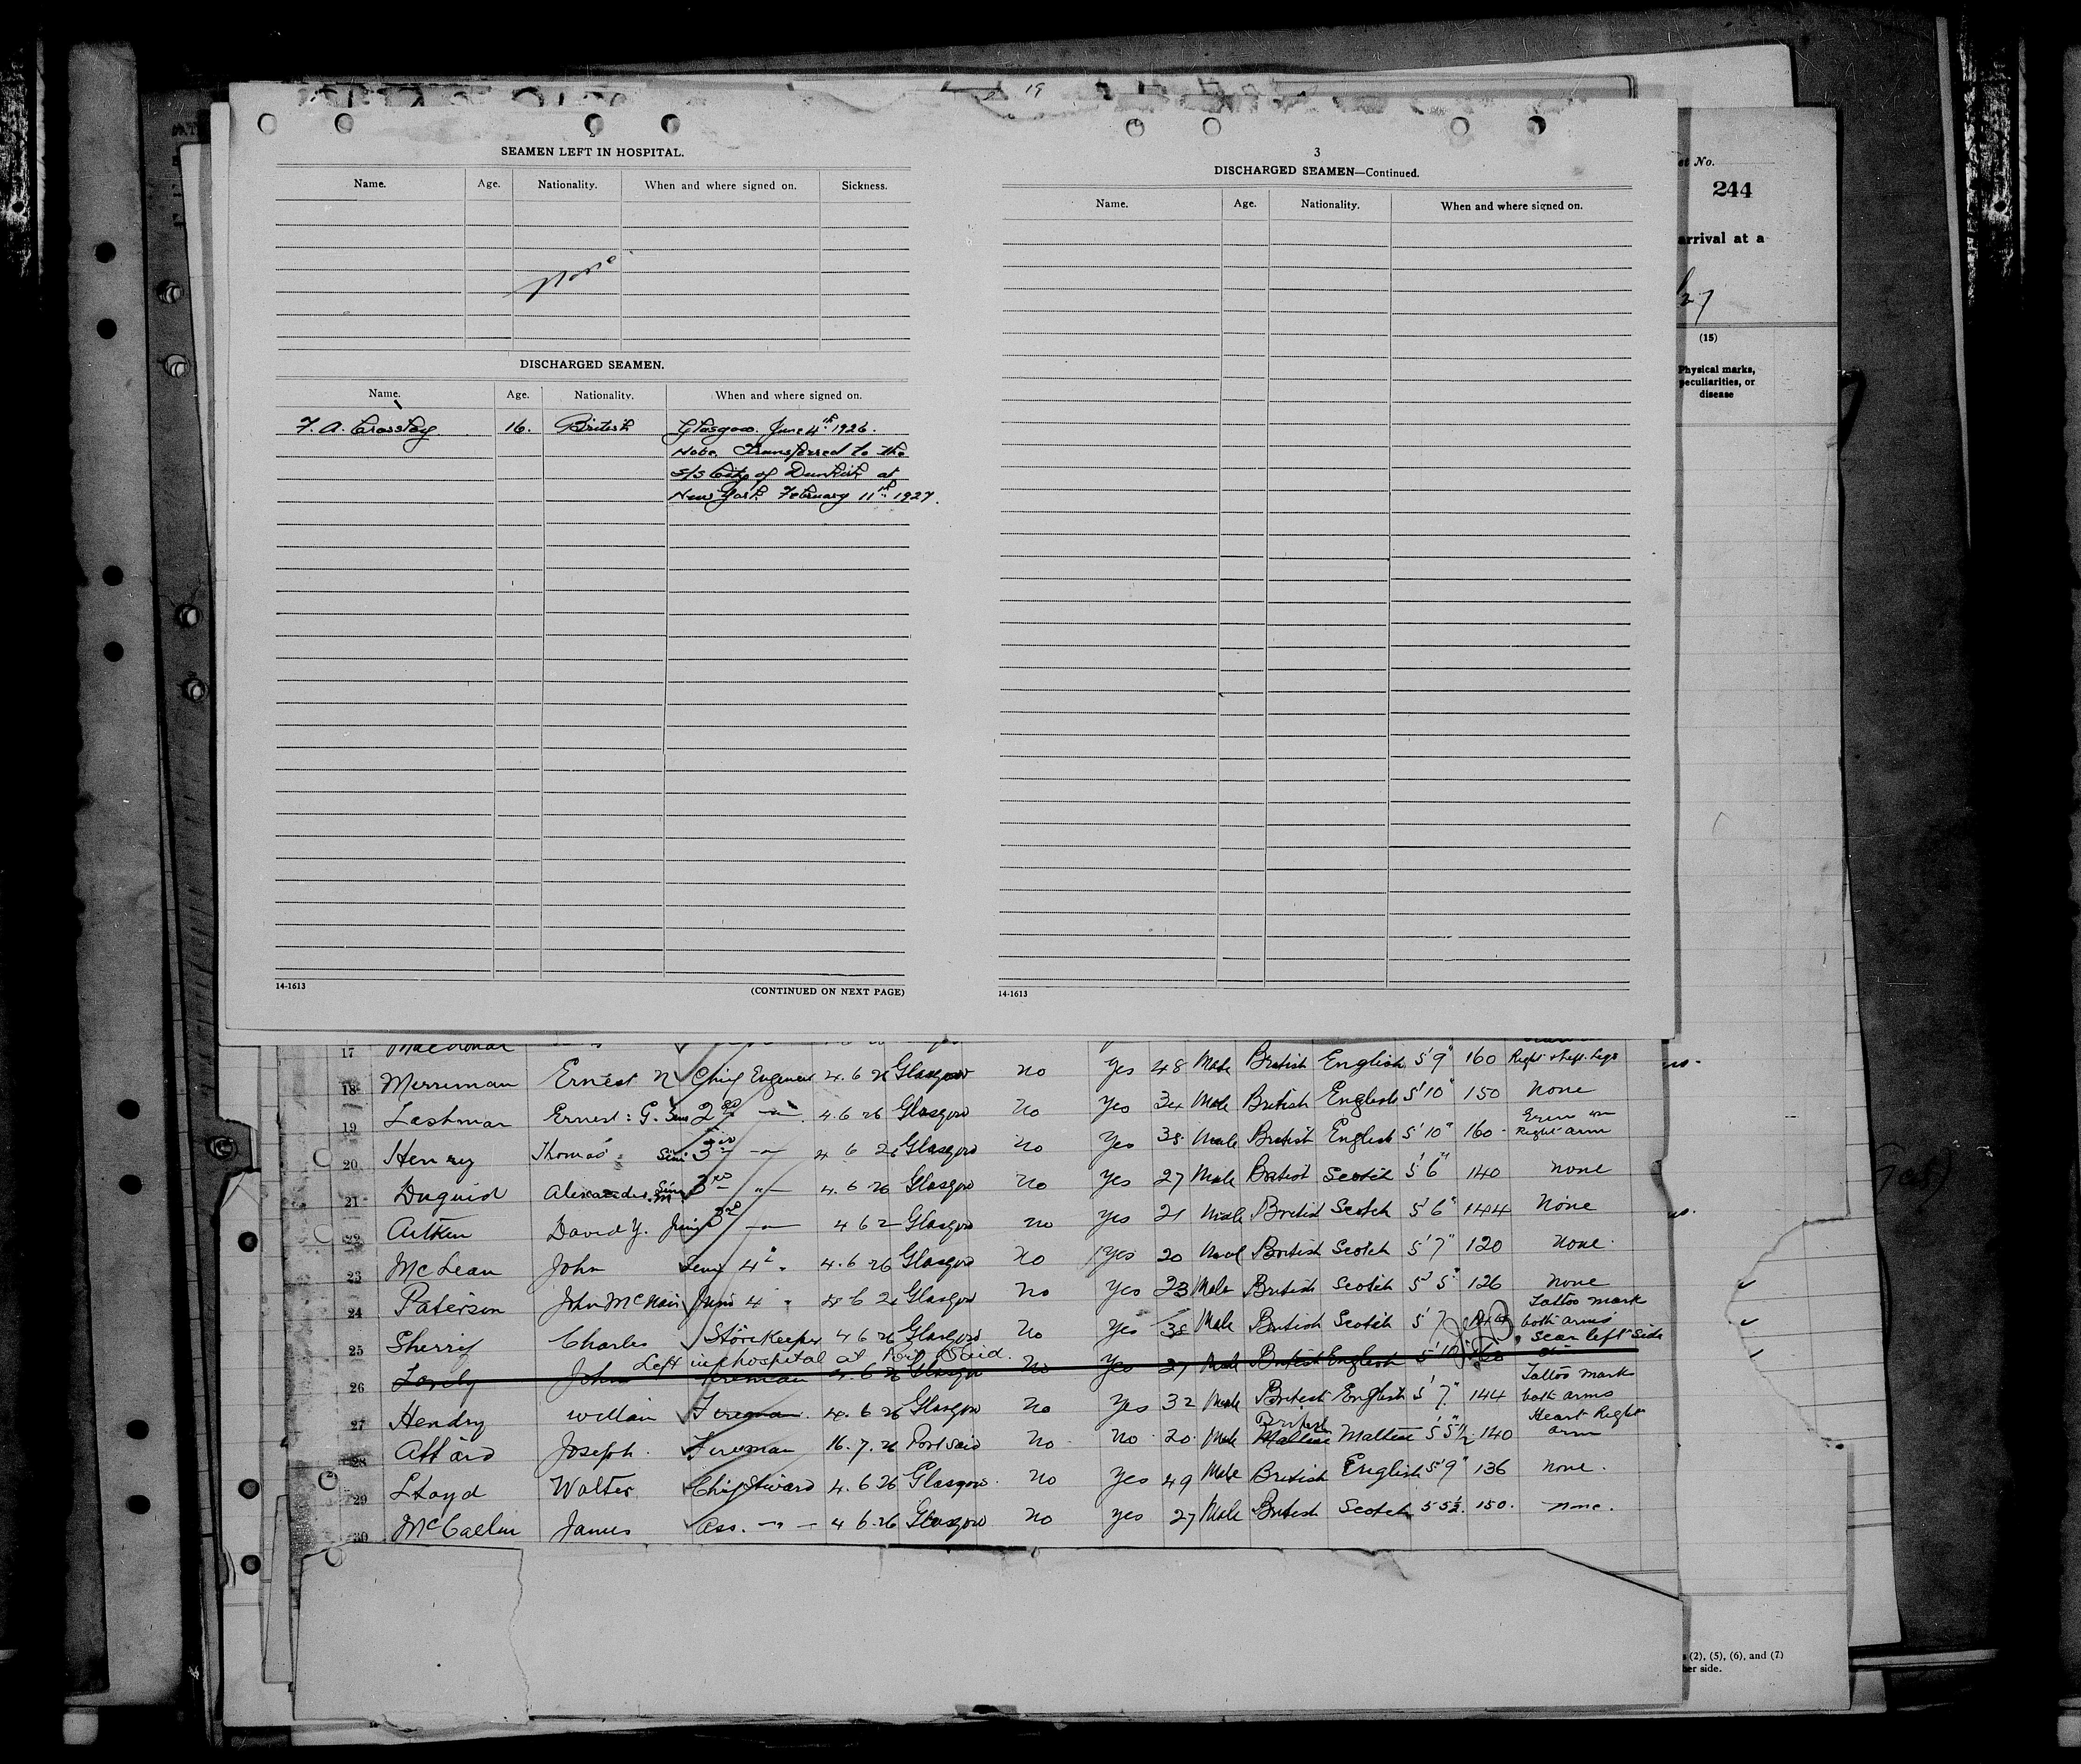 19
SEAMEN LEFT IN HOSPITAL.
Name. Age. Nationality. When and where signed on. Sickness.
None
DISCHARGED SEAMEN.
Name. Age. Nationality. When and where signed on.
F. A. Crossley 16. British Glasgow. June 4th 1926.
Note. Transferred to the
S/S City of Dunkirk at
New York February 11th 1927.
14-1613
(CONTINUED ON NEXT PAGE)
3
DISCHARGED SEAMEN—Continued.
Name. Age. Nationality. When and where signed on.
14-1613
No.
244
arrival at a
27
(15)
Physical marks,
peculiarities, or
disease
17
18 Merriman Ernest N Chief Engineer 4.6.26 Glasgow no Yes 48 Male British English 5'9" 160 Right & Left Legs
19 Lashmar Ernest G. 2nd 4.6.26 Glasgow no Yes 34 Male British English 5'10" 150 None
20 Henry Thomas 3rd 4 6 26 Glasgow no Yes 38 Male British English 5'10" 160 Right arm
21 Duguid Alexander 3rd 4.6.26 Glasgow no Yes 27 Male British Scotch 5'6" 140 none
22 Aitken David Y. 3rd 4 6 2 Glasgow no Yes 21 Male British Scotch 5'6" 144 None
23 McLean John 4 4.6.26 Glasgow no Yes 20 British Scotch 5'7" 120 None.
24 Paterson John McNair 4 4 6 26 Glasgow no Yes 23 Male British Scotch 5'5" 126 None
25 Sherrif Charles Storekeeper 4 6 26 Glasgow no Yes 38 Male British Scotch 5'7 Tattoo mark both arms
Left in hospital at Port Said.
26 John Fireman 4 6 26 Glasgow no Yes 27 Male British English 5'10 scar left side
27 Hendry William Fireman. 4.6.26 Glasgow no Yes 32 Male British English 5'7" 144 Tattoo marks both arms
28 Attard Joseph. Fireman 16.7.26 Port said no no 20 Male British Maltese Maltese 5'5½" 140 Heart Right arm
29 Lloyd Walter Chief Steward 4.6.26 Glasgow. no Yes 49 Male British English 5'9" 136 none.
30 McCallum James Ass. 4 6.26 Glasgow no yes 27 Male British Scotch 5 5½. 150. none.
(2), (5), (6), and (7)
her side.